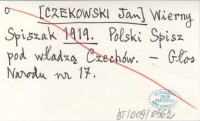 [CZEKOWSKI Jan] Wierny
Spiszak 1919. Polski Spisz
pod władzą Czechów. – Głos
Narodu nr 17.